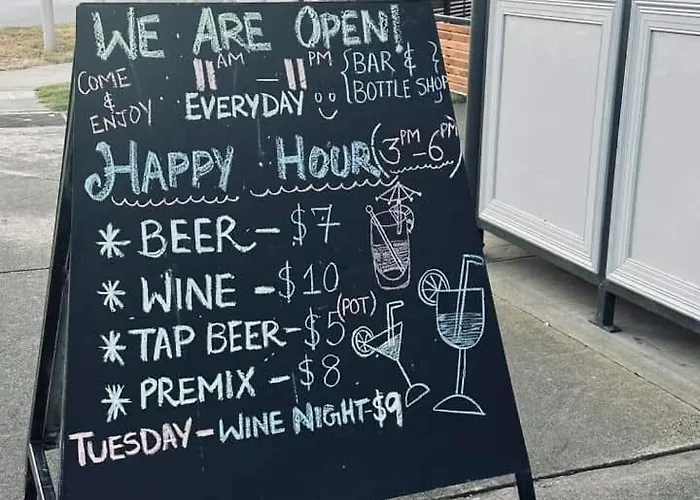 WE ARE OPEN!
COME & ENJOY
11AM - 11PM
EVERYDAY
{BAR & BOTTLE SHOP}
HAPPY HOUR (3PM-6PM)
* BEER - $7
* WINE - $10
* TAP BEER - $5 (POT)
* PREMIX - $8
TUESDAY - WINE NIGHT - $9